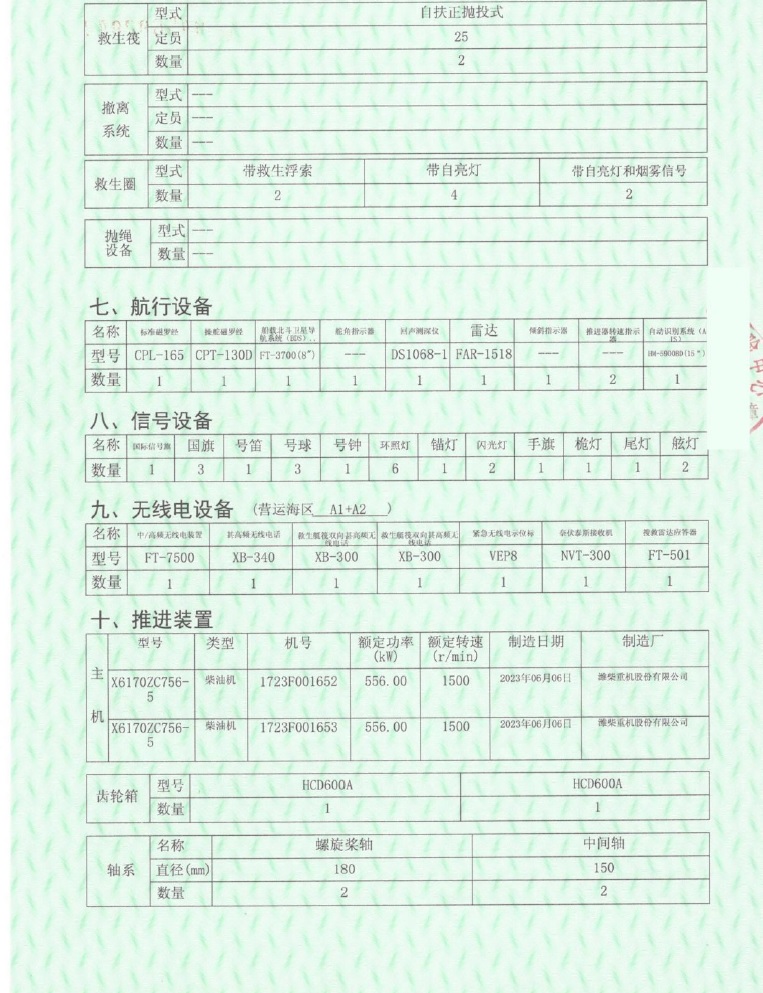 型式 自扶正抛投式
救生筏 定员 25
数量 2
撤离系统 型式 ---
定员 ---
数量 ---
救生圈 型式 带救生浮索 带自亮灯 带自亮灯和烟雾信号
数量 2 4 2
抛绳设备 型式 ---
数量 ---
七、航行设备
名称 标准磁罗经 操舵磁罗经 船载北斗卫星导航系统（BDS）.. 舵角指示器 回声测深仪 雷达 倾斜指示器 推进器转速指示器 自动识别系统（AIS）
型号 CPL-165 CPT-130D FT-3700(8") --- DS1068-1 FAR-1518 --- --- HM-5900BD(15")
数量 1 1 1 1 1 1 1 2 1
八、信号设备
名称 国际信号旗 国旗 号笛 号球 号钟 环照灯 锚灯 闪光灯 手旗 桅灯 尾灯 舷灯
数量 1 3 1 3 1 6 1 2 1 1 1 2
九、无线电设备 （营运海区 A1+A2 ）
名称 中/高频无线电装置 甚高频无线电话 救生艇筏双向甚高频无线电话 救生艇筏双向甚高频无线电话 紧急无线电示位标 奈伏泰斯接收机 搜救雷达应答器
型号 FT-7500 XB-340 XB-300 XB-300 VEP8 NVT-300 FT-501
数量 1 1 1 1 1 1 1
十、推进装置
型号 类型 机号 额定功率(kW) 额定转速(r/min) 制造日期 制造厂
主机 X6170ZC756-5 柴油机 1723F001652 556.00 1500 2023年06月06日 潍柴重机股份有限公司
X6170ZC756-5 柴油机 1723F001653 556.00 1500 2023年06月06日 潍柴重机股份有限公司
齿轮箱 型号 HCD600A HCD600A
数量 1 1
轴系 名称 螺旋桨轴 中间轴
直径(mm) 180 150
数量 2 2